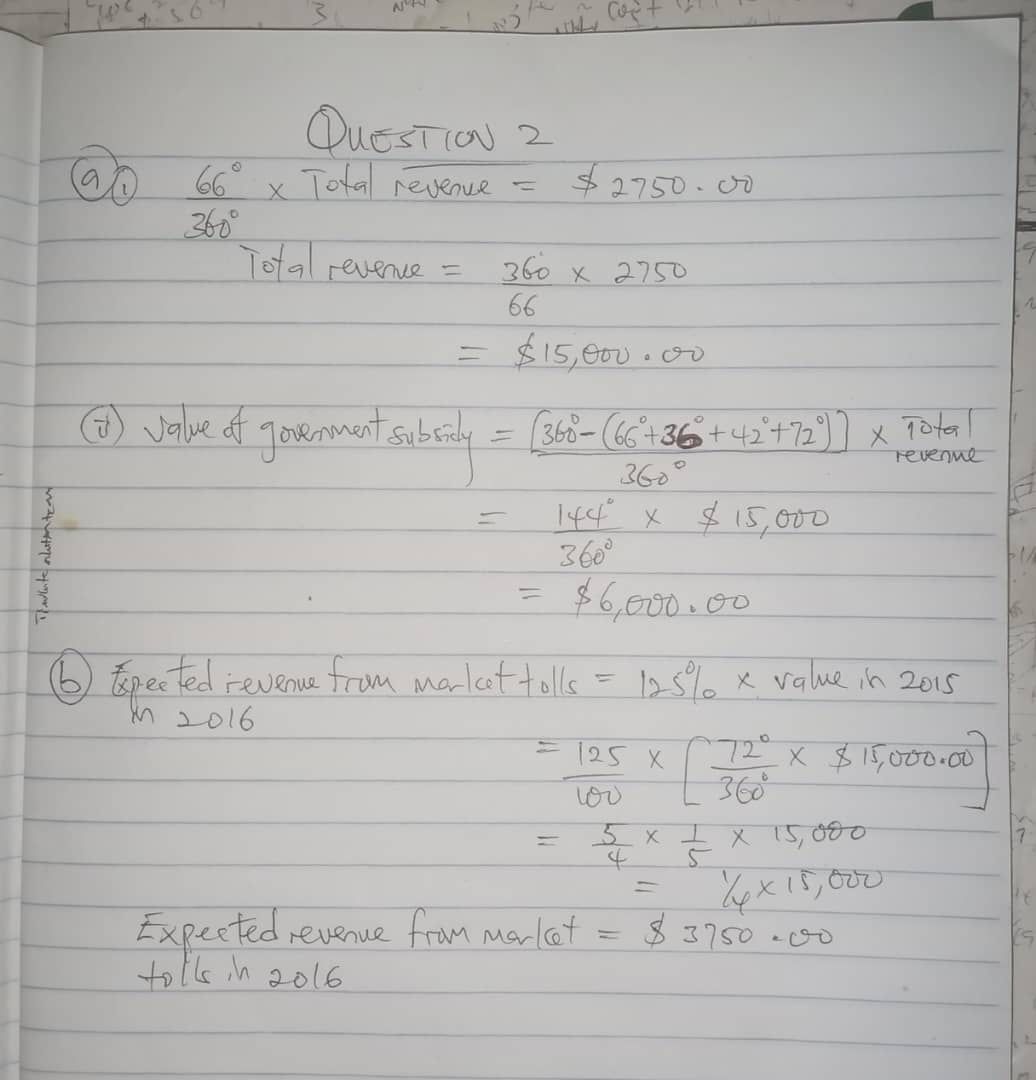 QUESTION 2
(a)(i) 66°/360° × Total revenue = $ 2750.00
Total revenue = 360/66 × 2750
= $15,000.00
(ii) Value of government subsidy = [360°-(66°+36°+42°+72°)]/360° × Total revenue
= 144°/360° × $ 15,000
= $6,000.00
(b) Expected revenue from market tolls = 125% × value in 2015
in 2016
= 125/100 × [72°/360° × $ 15,000.00]
= 5/4 × 1/5 × 15,000
= 1/4 × 15,000
Expected revenue from market = $ 3750.00
tolls in 2016